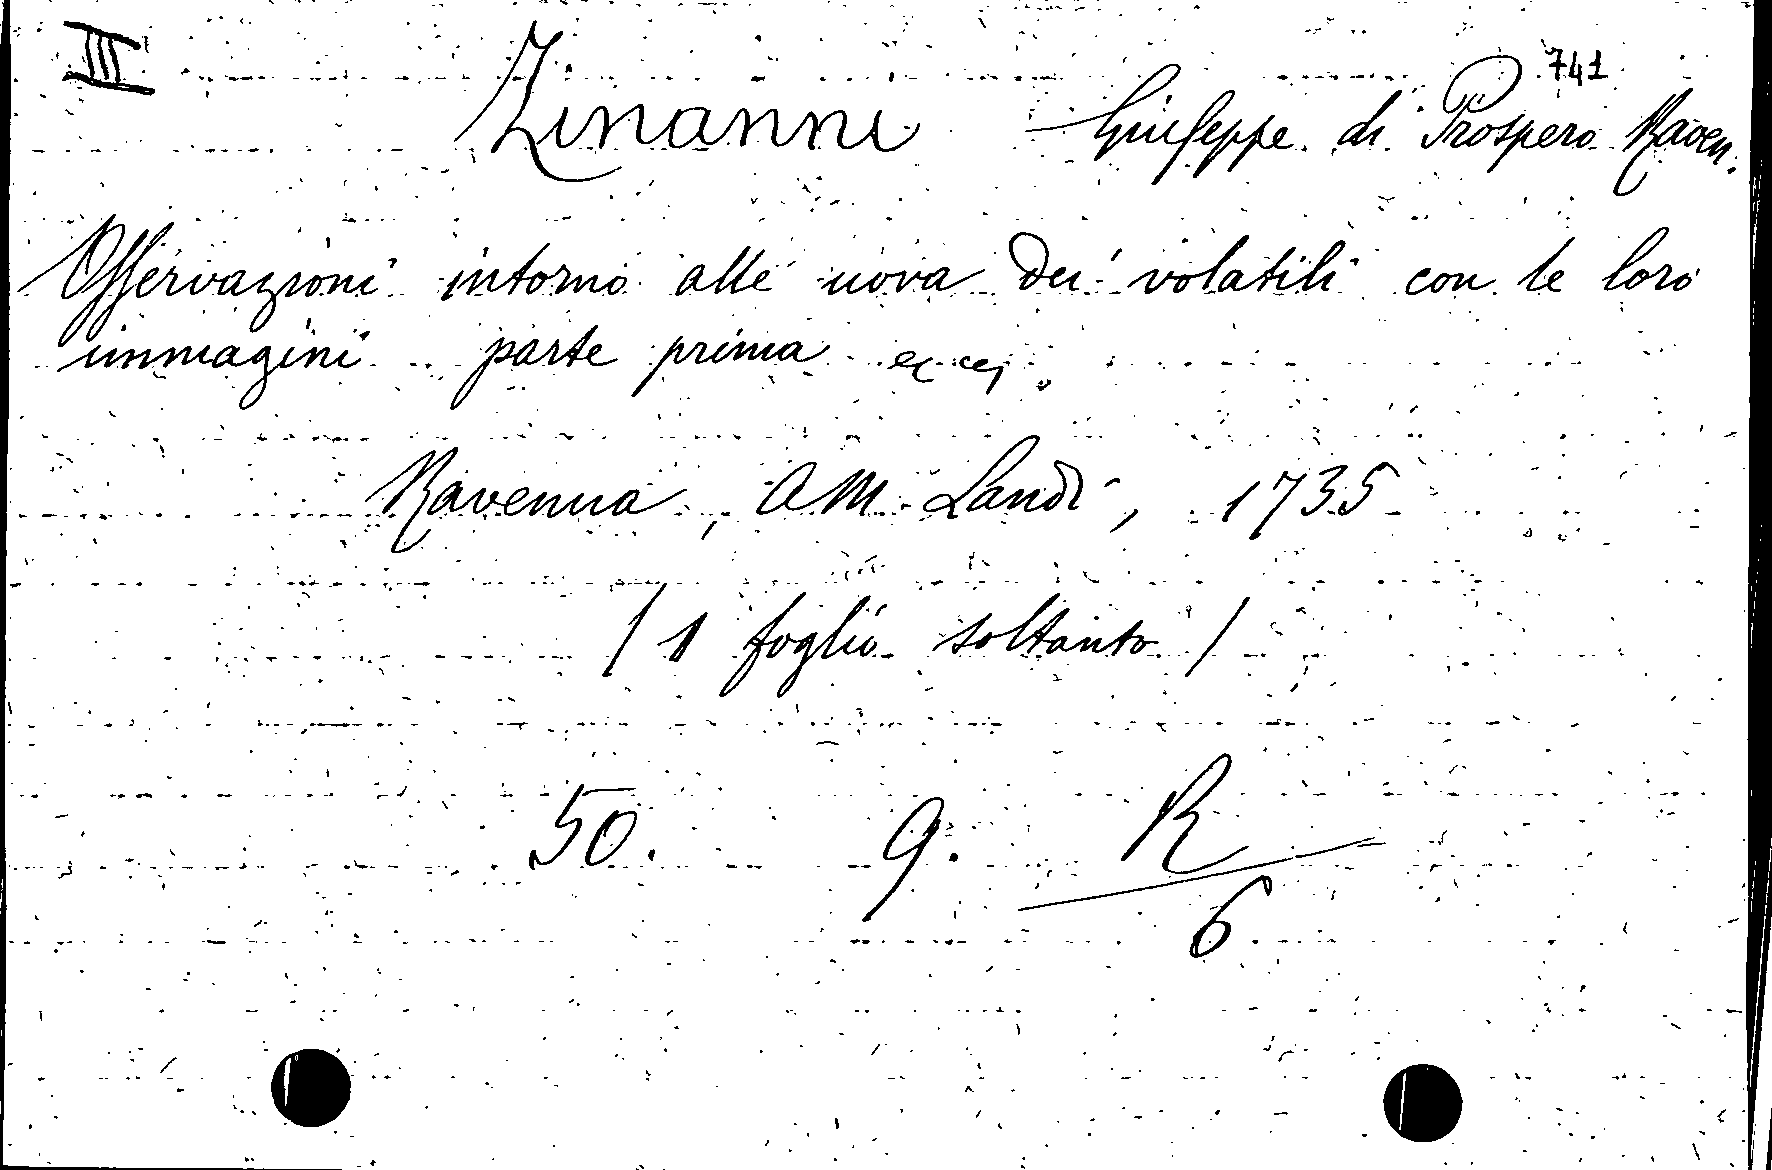 III
741
Zinanni Giuseppe di Prospero Raven.
Osservazioni intorno alle uova dei volatili con le loro
immagini parte prima
Ravenna, A M Landi, 1735
/ 1 foglio soltanto /
50. 9. R
6